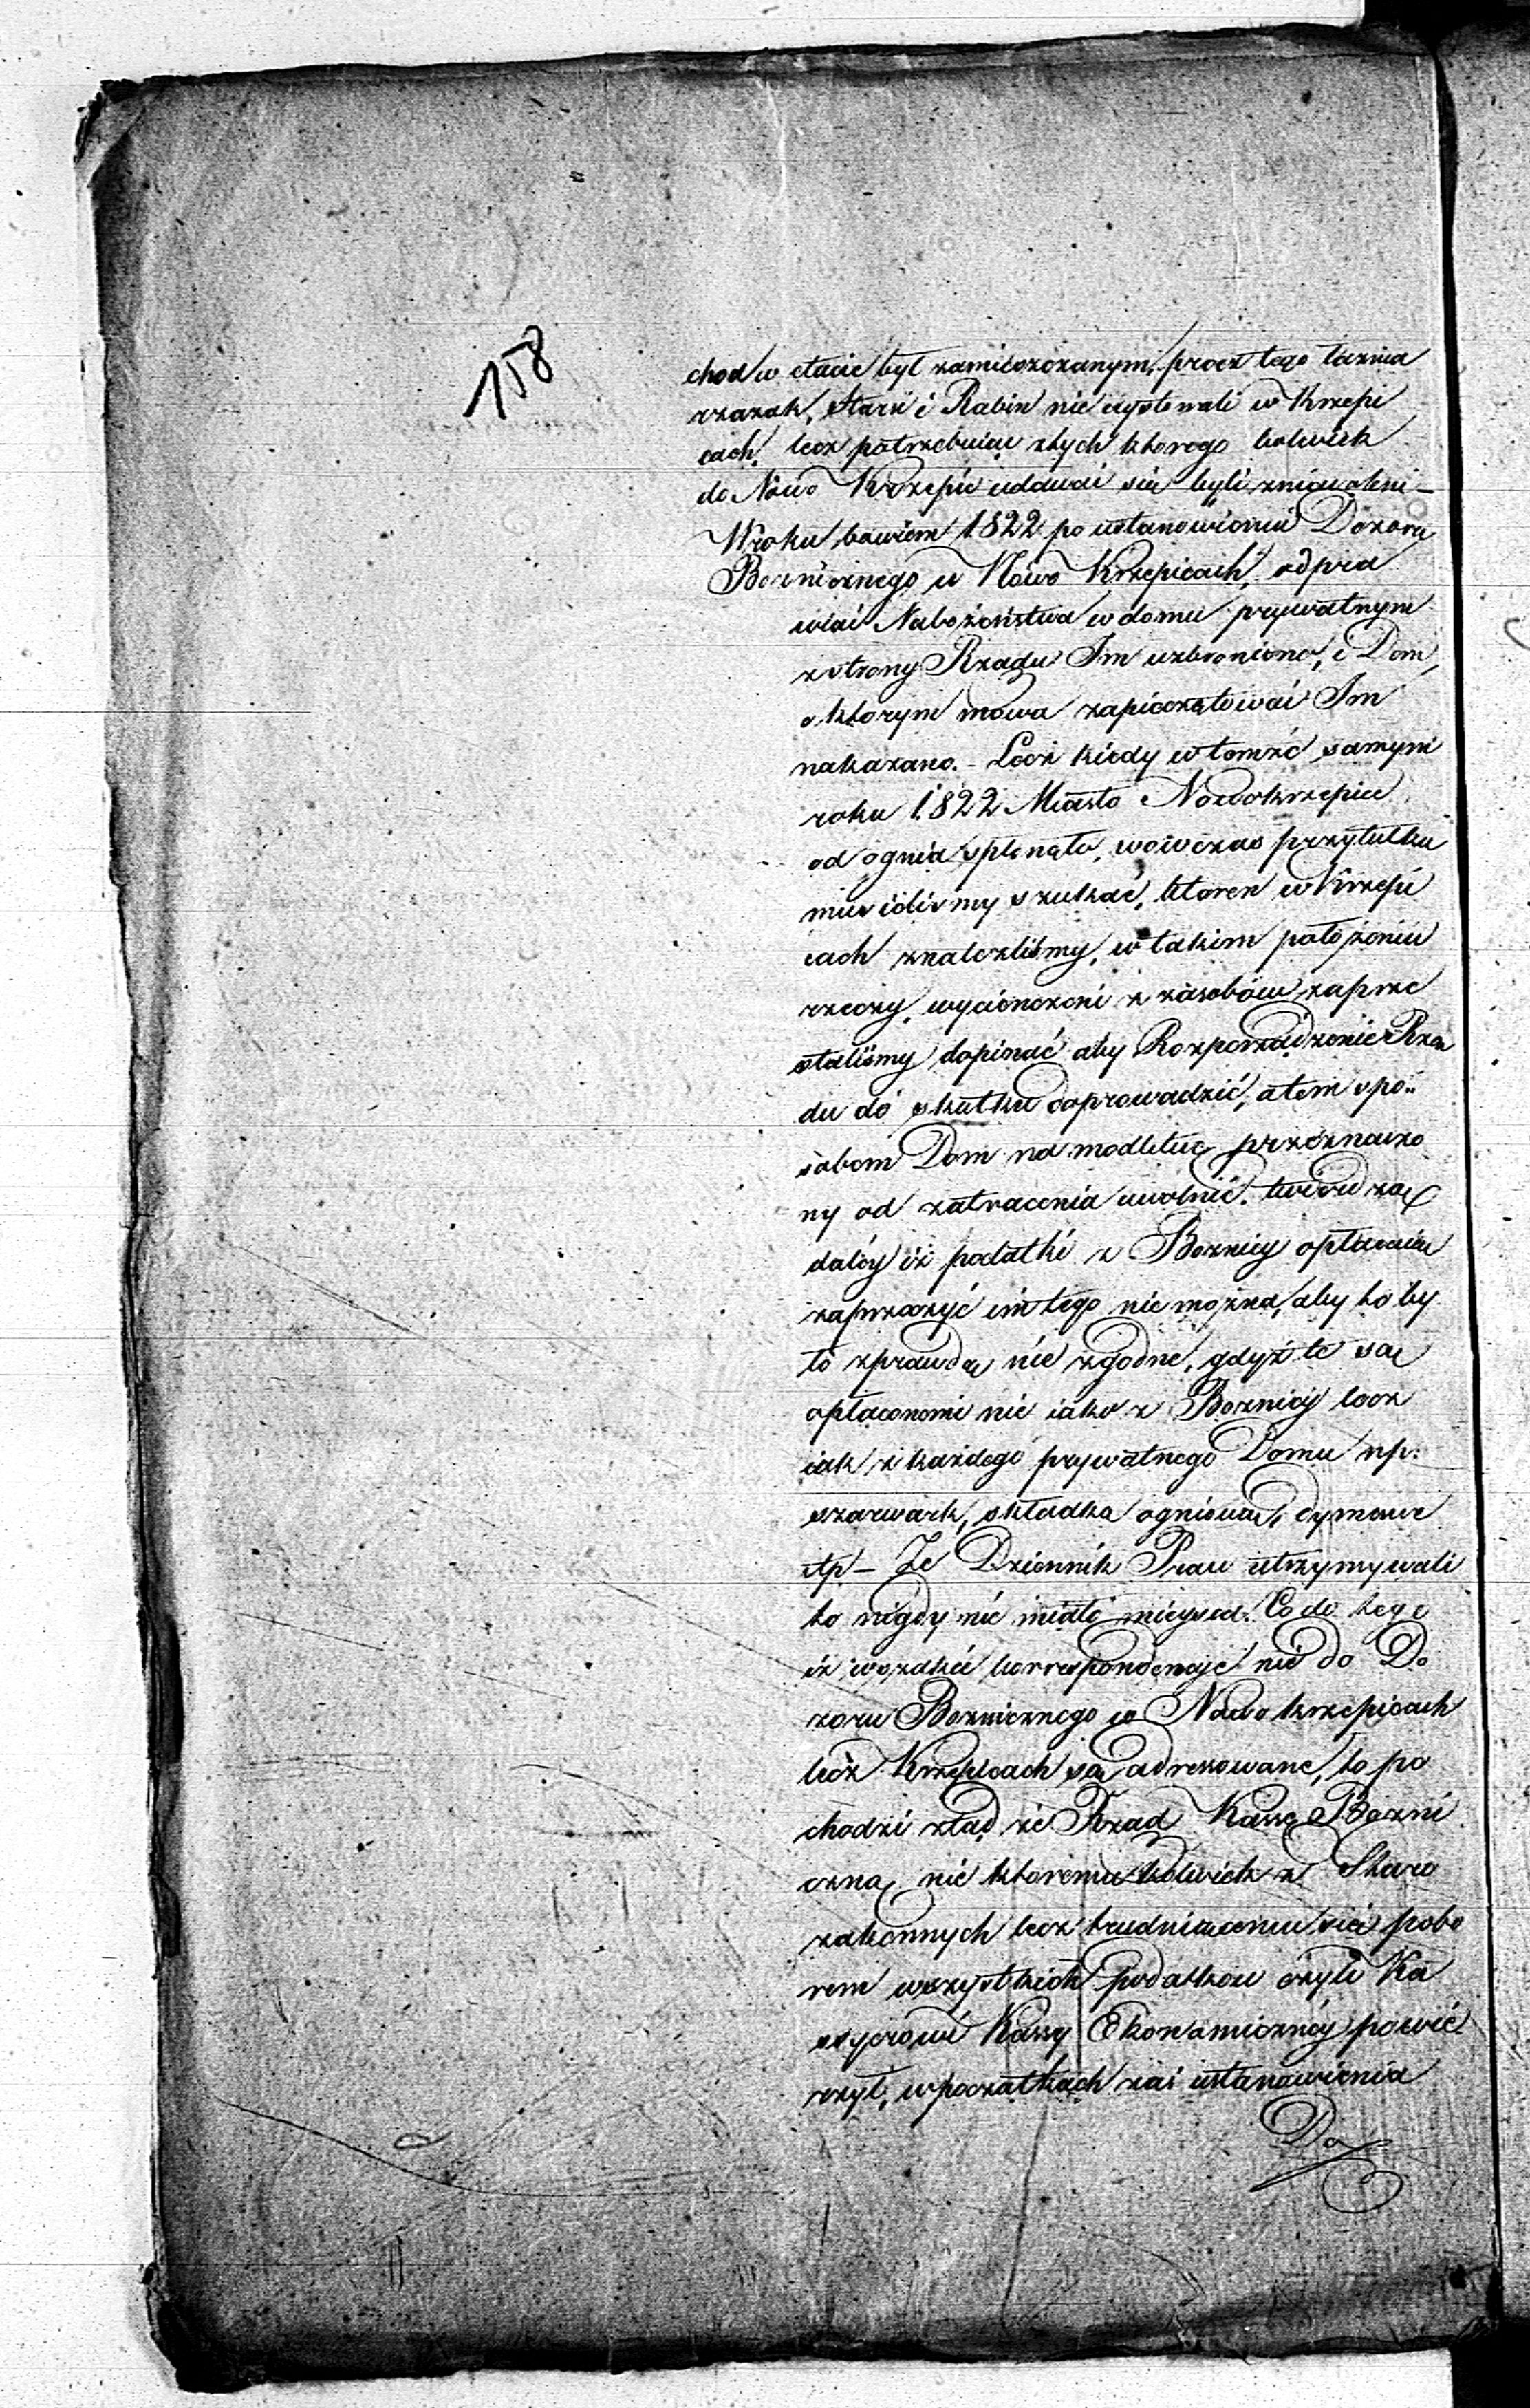 158
chod w etacie był zamieszczanym, procz tego łaznia
rzazak, Starsi i Rabin nie exystowali w Krzepi
cach, lecz potrzebuiąc złych ktorego kolwiek
do Nowo Krzepic udawać się byli zniewoleni –
W roku bowiem 1822 po ustanowieniu Dozoru
Boznicznego w Nowo Krzepicach, odpra
wiać Nabożeństwa w domu prywatnym
z strony Rządu Im uzbroniono, i Dom,
o ktorym mowa zapieczętować Im
nakazano. – Lecz kiedy w tomże samym
roku 1822 Miasto Nowokrzepice
od ognia spłonęło, wowczas przytułku
musieliśmy szukać, ktoren w Krzepi
cach znalezliśmy, w takim położeniu
rzeczy, wycienczeni z zasobów zaprze
staliśmy dopinać aby Rozporządzenie Rzą
du do skutku doprowadzić, a tem spo„
sobem Dom na modlitwę przeznaczo
ny od zatracenia uwolnić. twierdzą
daléy iż podatki z Boznicy opłacaią
zaprzeczyć im tego nie można, aby to by
ło z prawdą nie zgodne, gdyż te są
opłaconemi nie iako z Boznicy lecz
iak z każdego prywatnego Domu np:
szarwark, składka ogniowa, dymowe
itp – Ze Dziennik Praw utrzymywali
to nigdy nie miało mieysca. Co do tego
iż wszelkie korrespondencye nie do Do
zoru Boznicznego w Nowokrzepicach
lecz Krzepicach są adresowane, to po
chodzi ztąd że Rząd Kassę Bozni
czną nie ktoremu kolwiek z Staro
zakonnych lecz trudniącemu się pobo
rem wszystkich podatkow czyli Ka
ssyerowi Kassy Ekonomicznéy powie
rzył, w początkach zaś ustanowienia
Do